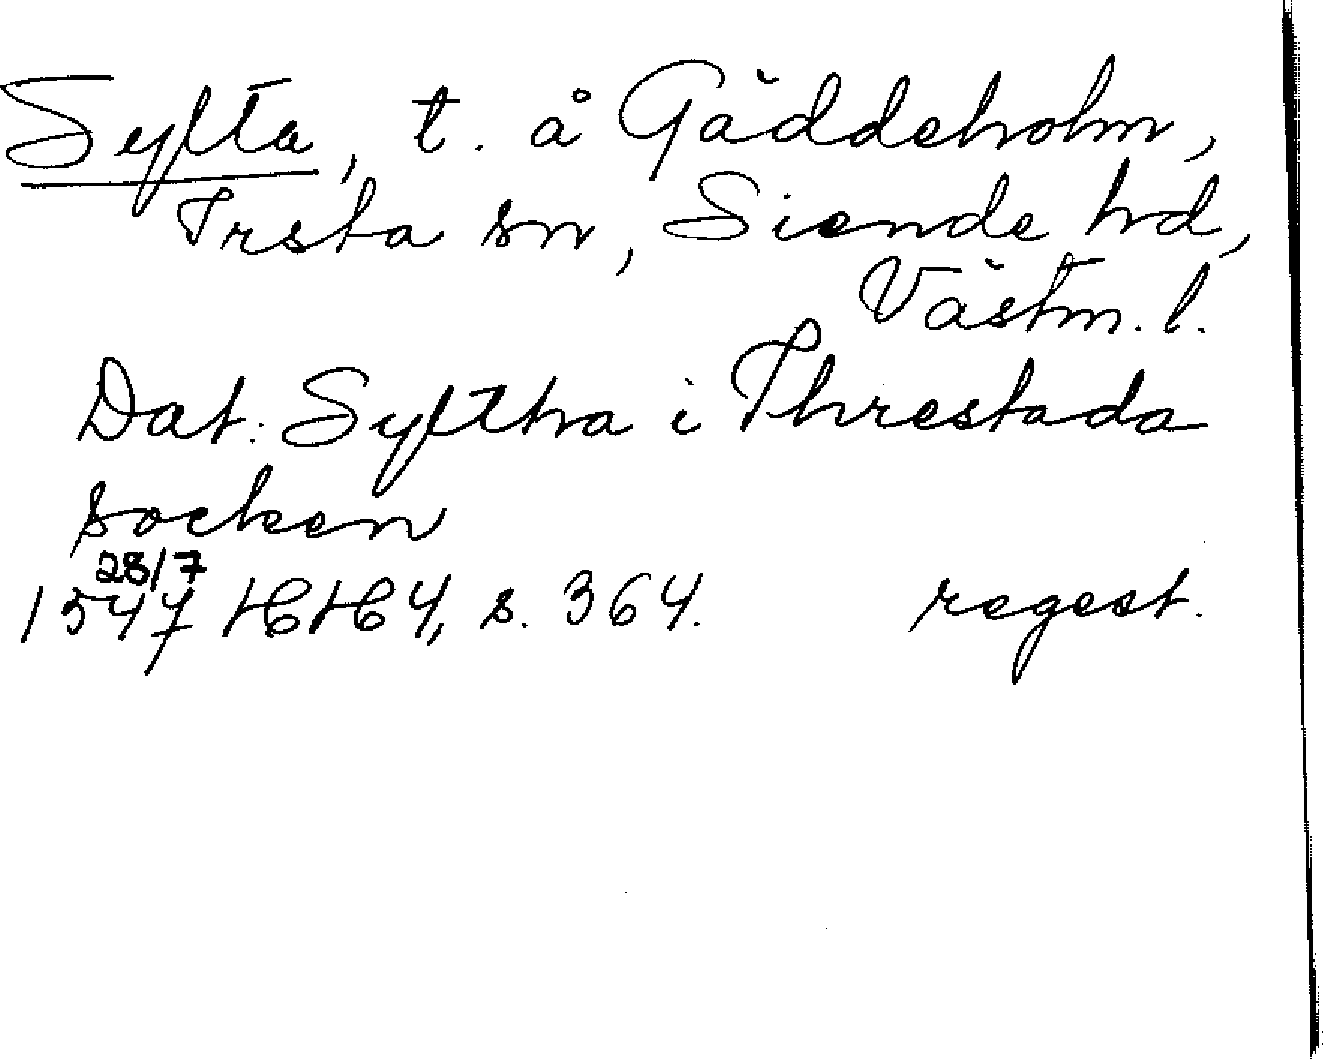 Sylta, t. å Gäddeholm,
Irsta sn, Siende hd,
Västm. l.
Dat: Syltha i Threstada
socken
28/7
1547 HH 4, s. 364. regest.